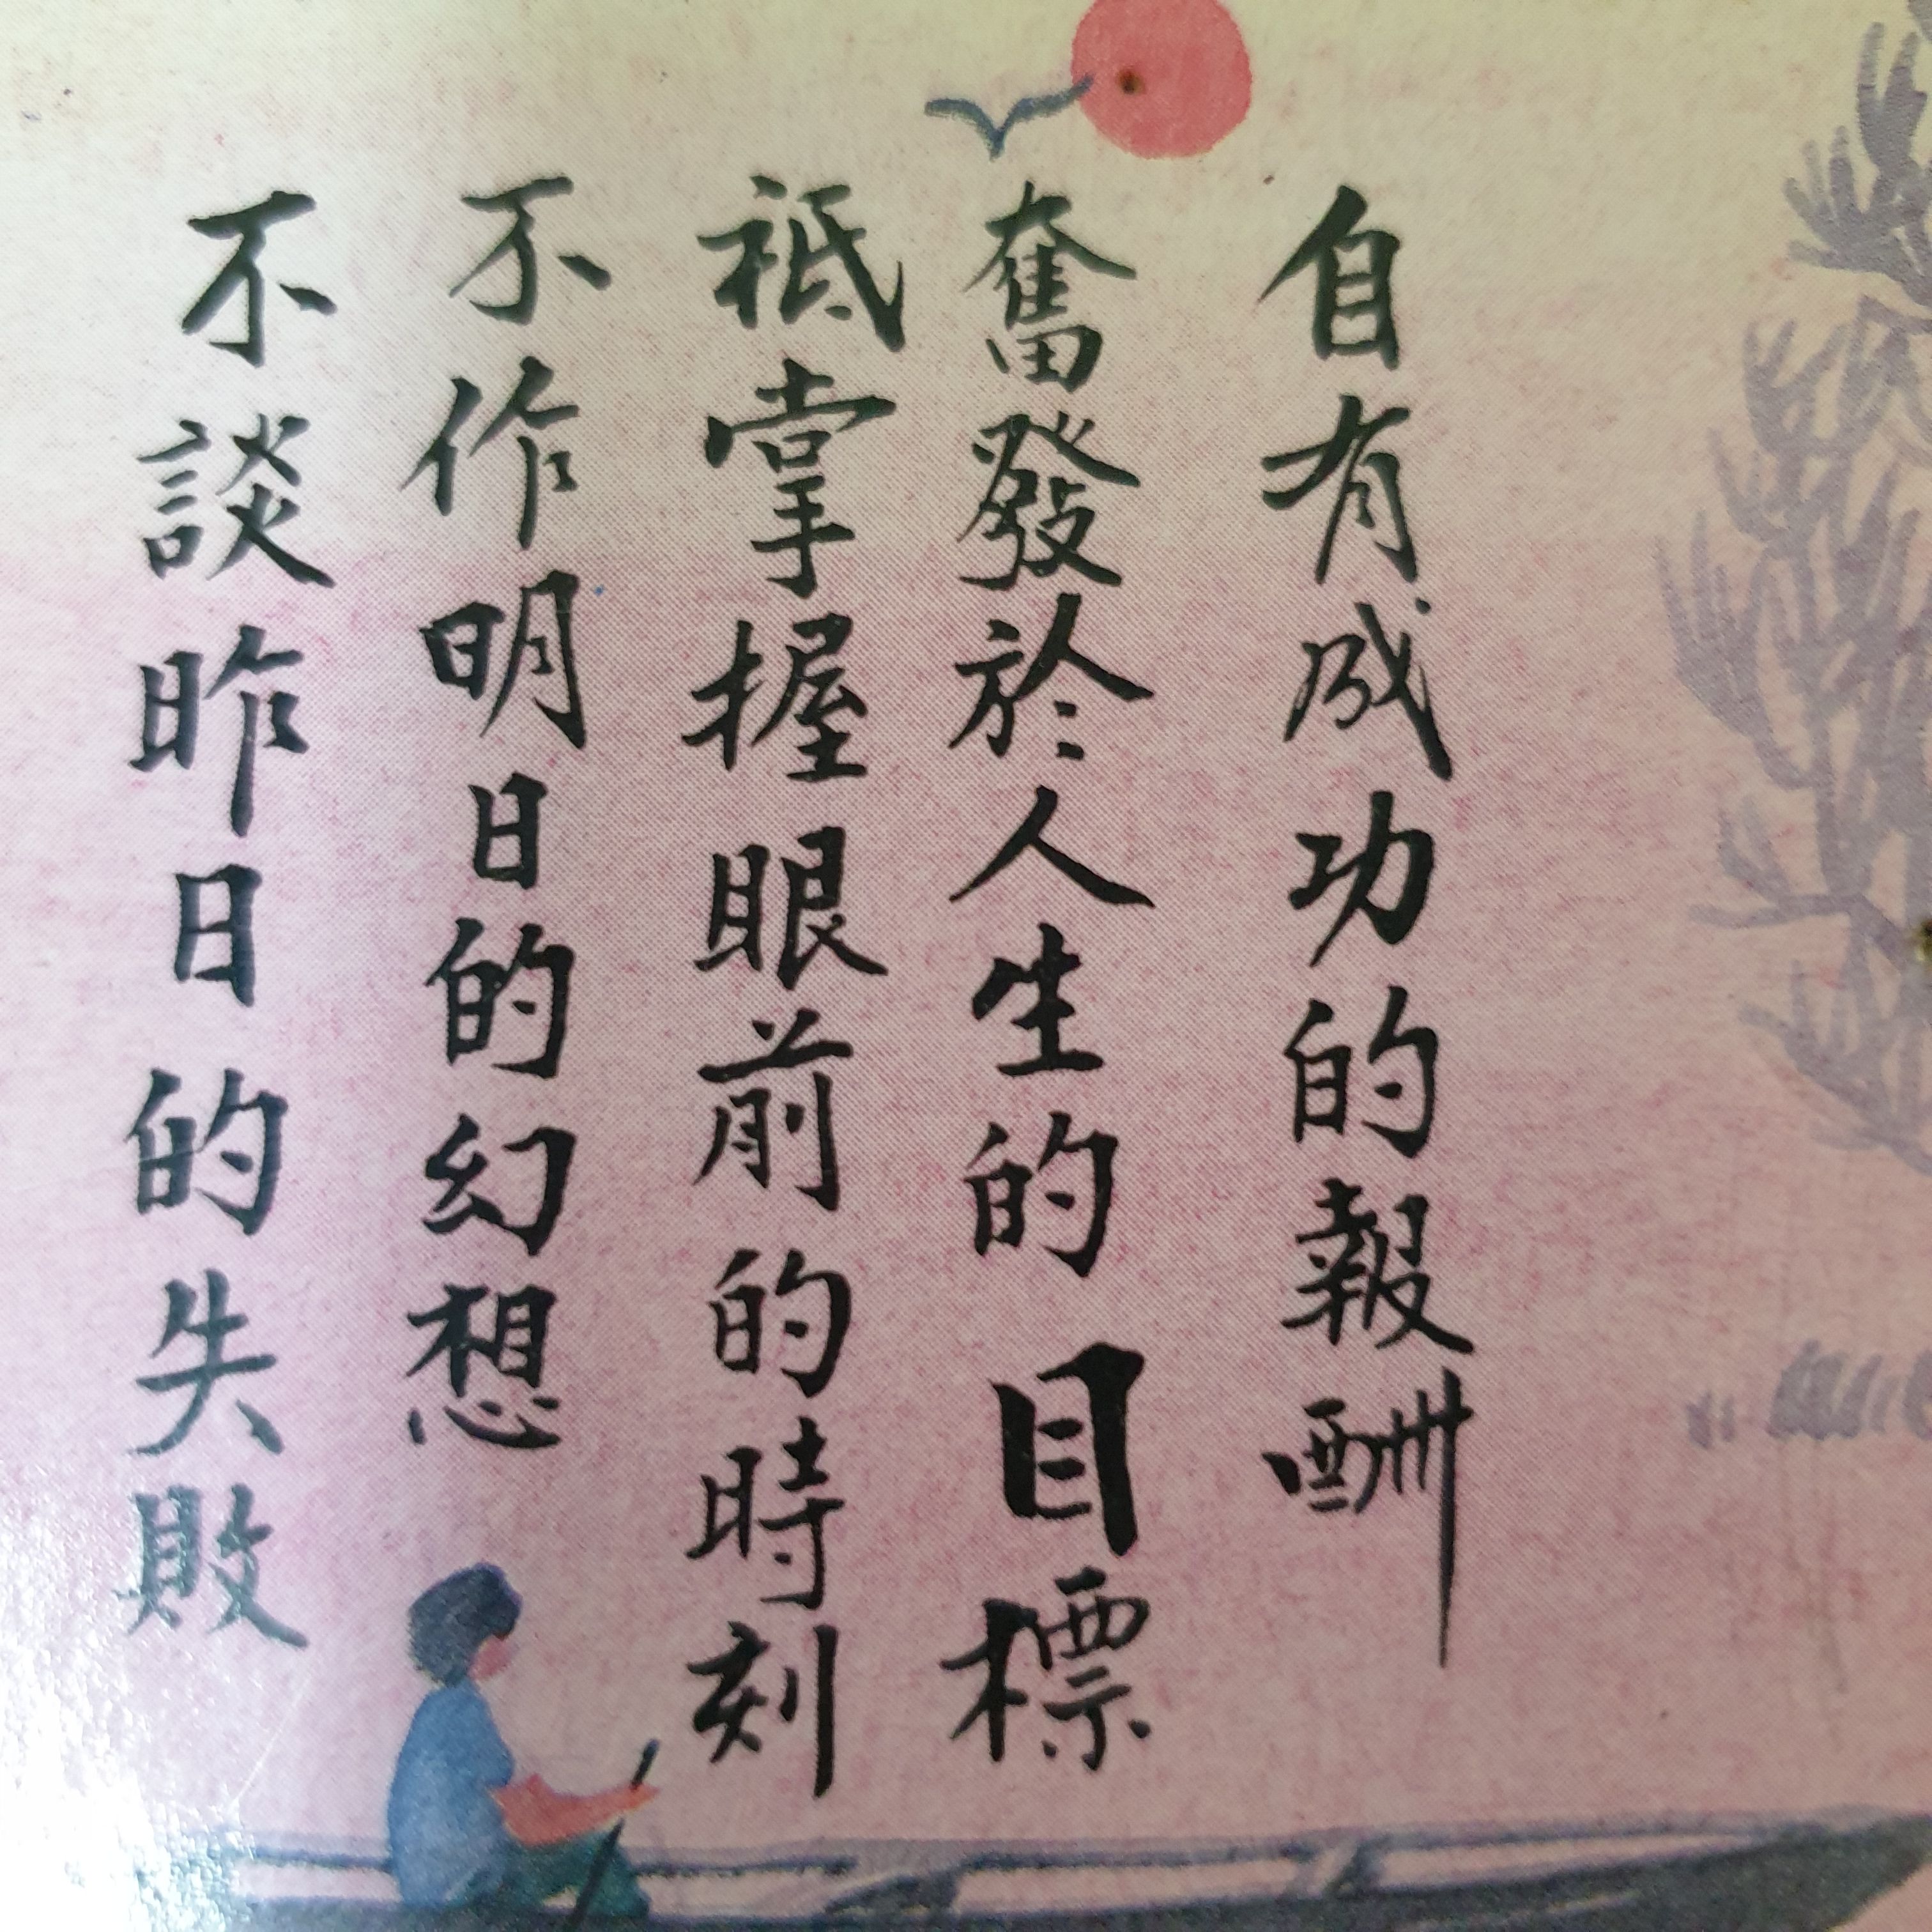 不談昨日的失敗
不作明日的幻想
祗掌握眼前的時刻
奮發於人生的目標
自有成功的報酬